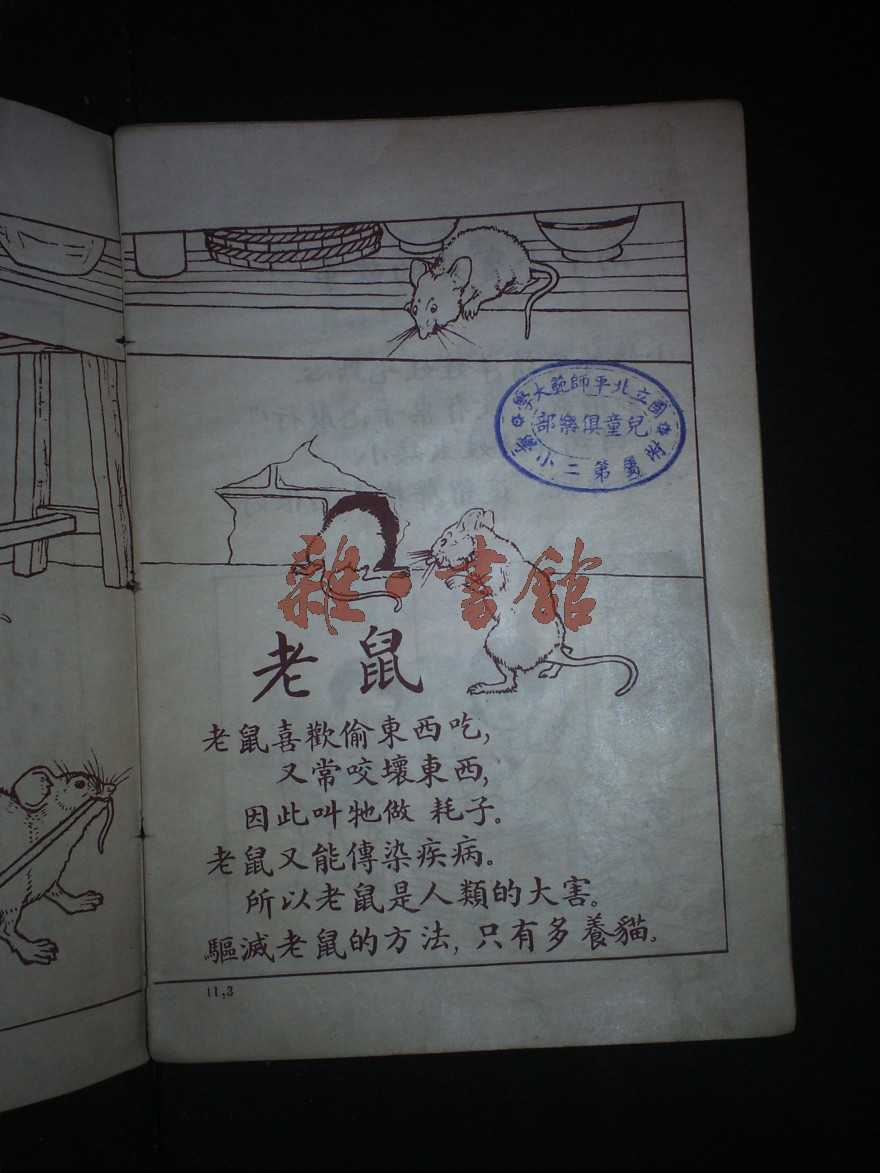 國立北平師範大學
兒童俱樂部
附屬第二小
雜·書館
老鼠
老鼠喜歡偷東西吃,
又常咬壞東西,
因此叫牠做 耗子。
老鼠又能傳染疾病。
所以老鼠是人類的大害。
驅滅老鼠的方法,只有多養貓。
11,3